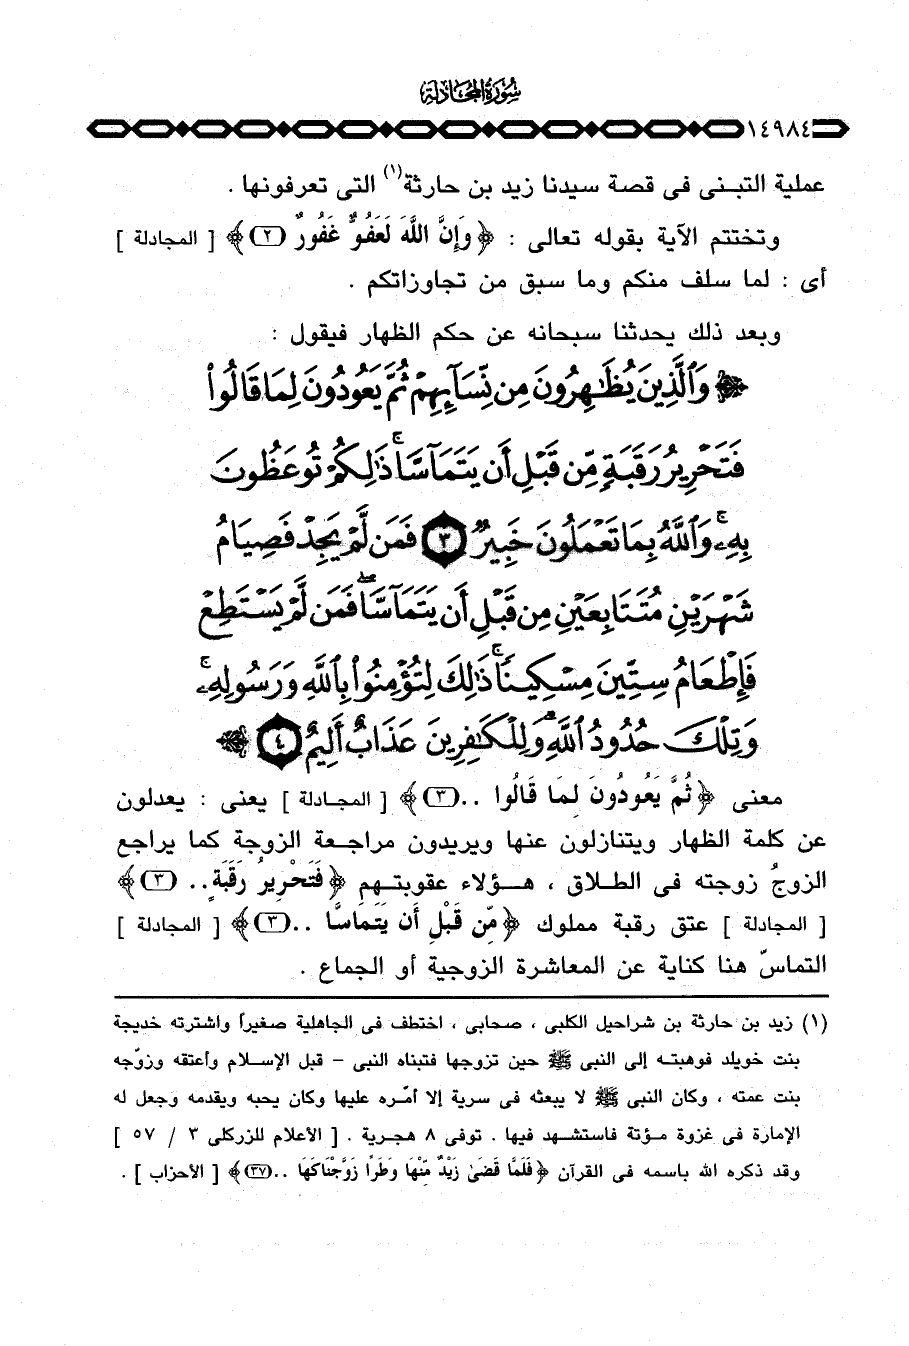 سورة المجادلة
١٤٩٨٤
عملية التبنى فى قصة سيدنا زيد بن حارثة(١) التى تعرفونها .
وتختتم الآية بقوله تعالى : ﴿ وَإِنَّ اللَّهَ لَعَفُوٌّ غَفُورٌ (٢) ﴾ [ المجادلة ]
أى : لما سلف منكم وما سبق من تجاوزاتكم .
وبعد ذلك يحدثنا سبحانه عن حكم الظهار فيقول :
﴿ وَٱلَّذِينَ يُظَٰهِرُونَ مِن نِّسَآئِهِمْ ثُمَّ يَعُودُونَ لِمَا قَالُوا۟
فَتَحْرِيرُ رَقَبَةٍ مِّن قَبْلِ أَن يَتَمَآسَّا ۚ ذَٰلِكُمْ تُوعَظُونَ
بِهِۦ ۚ وَٱللَّهُ بِمَا تَعْمَلُونَ خَبِيرٌ ٣ فَمَن لَّمْ يَجِدْ فَصِيَامُ
شَهْرَيْنِ مُتَتَابِعَيْنِ مِن قَبْلِ أَن يَتَمَآسَّا ۖ فَمَن لَّمْ يَسْتَطِعْ
فَإِطْعَامُ سِتِّينَ مِسْكِينًا ۚ ذَٰلِكَ لِتُؤْمِنُوا۟ بِٱللَّهِ وَرَسُولِهِۦ ۚ
وَتِلْكَ حُدُودُ ٱللَّهِ ۗ وَلِلْكَٰفِرِينَ عَذَابٌ أَلِيمٌ ٤ ﴾
معنى ﴿ ثُمَّ يَعُودُونَ لِمَا قَالُوا ..(٣) ﴾ [ المجادلة ] يعنى : يعدلون
عن كلمة الظهار ويتنازلون عنها ويريدون مراجعة الزوجة كما يراجع
الزوجُ زوجته فى الطلاق ، هؤلاء عقوبتهم ﴿ فَتَحْرِيرُ رَقَبَةٍ .. (٣) ﴾
[ المجادلة ] عتق رقبة مملوك ﴿ مِّن قَبْلِ أَن يَتَمَاسَّا ..(٣) ﴾ [ المجادلة ]
التماسّ هنا كناية عن المعاشرة الزوجية أو الجماع .
(١) زيد بن حارثة بن شراحيل الكلبى ، صحابى ، اختطف فى الجاهلية صغيراً واشترته خديجة
بنت خويلد فوهبته إلى النبى ﷺ حين تزوجها فتبناه النبى – قبل الإسلام وأعتقه وزوّجه
بنت عمته ، وكان النبى ﷺ لا يبعثه فى سرية إلا أمّره عليها وكان يحبه ويقدمه وجعل له
الإمارة فى غزوة مؤتة فاستشهد فيها . توفى ٨ هجرية . [ الأعلام للزركلى ٣ / ٥٧ ]
وقد ذكره الله باسمه فى القرآن ﴿ فَلَمَّا قَضَىٰ زَيْدٌ مِّنْهَا وَطَرًا زَوَّجْنَاكَهَا ..(٣٧) ﴾ [ الأحزاب ] .